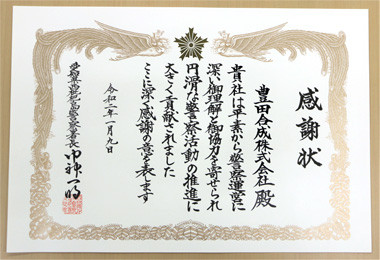 感謝状
豊田合成株式会社 殿
貴社は平素から警察運営に
深い御理解と御協力を寄せられ
円滑な警察活動の推進に
大きく貢献されました
ここに深く感謝の意を表します
令和二年一月九日
愛知県
警察署長